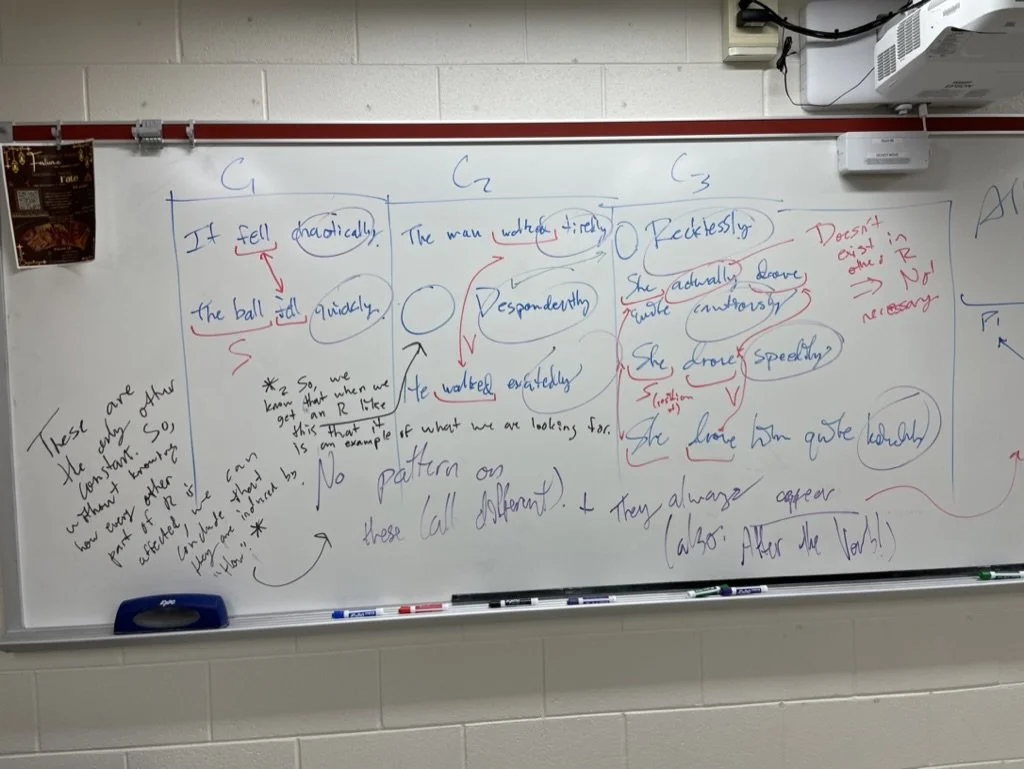 C1
C2
C3
It fell chaotically.
the ball fell quickly.
S
The man walked tiredly
Despondently
V
He walked excitedly
Recklessly
She actually drove
quite cautiously
She drove speedily
S
V
She drove him quite
Doesn't
exist in
other R
⇒ Not
necessary
These are
the only other
constant. So,
without knowing
how every other
part of R is
affected, we can
conclude that
they are induced by
"How". *
*2 So, we
know that when we
get an R like
this that it
is an example of what we are looking for.
No pattern on
these (all different). + They always appear
(also: After the Verb!)
P1
EPSON
expo